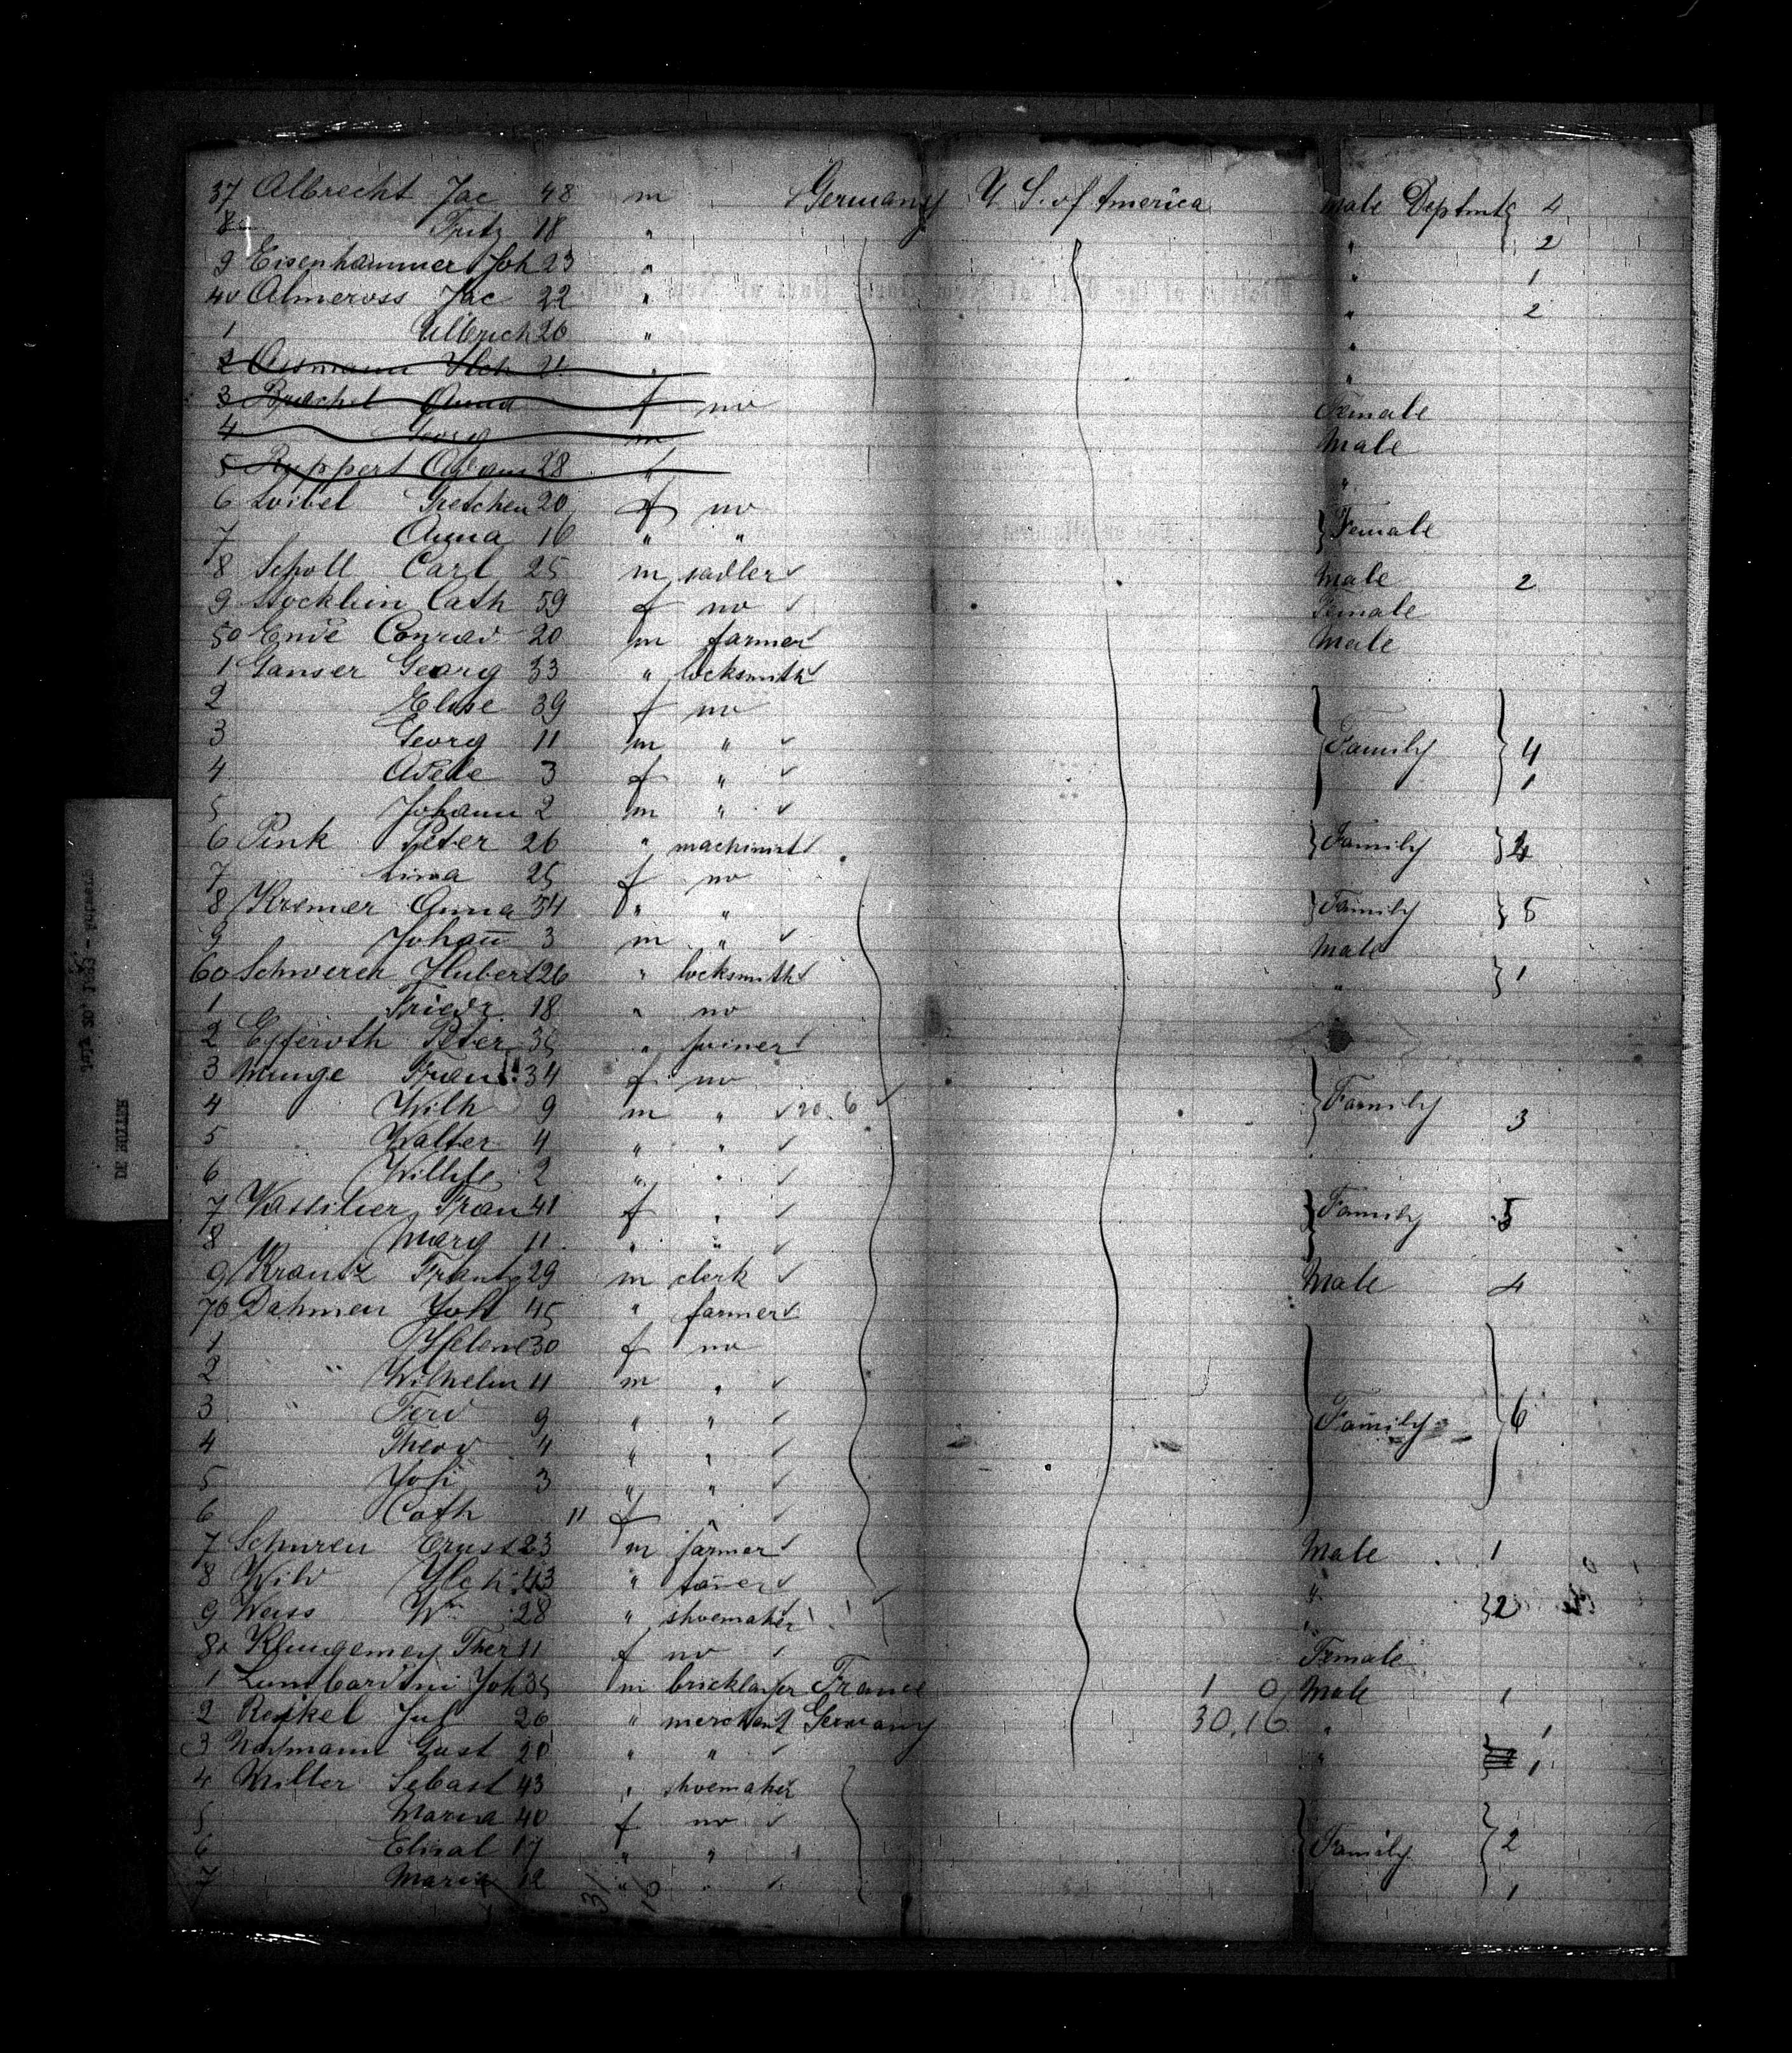 37 Albrecht Jac 48 m Germany U. S. of America male Deptmts 4
8 Fritz 18 " " 2
9 Eisenhammer Joh 23 " " 1
40 Almeross Jac 22 " " 2
1 Ulbrich 26 " "
2 Assmann Hch 21 " "
3 Brachel Anna f no Female
4 Georg m Male
5 Ruppert Adam 28 " "
6 Loibel Gretchen 20 f no
7 Anna 16 " " Female
8 Scholl Carl 25 m sadler Male 2
9 Stocklein Cath 59 f no Female
50 Ende Conrad 20 m farmer Male
1 Ganser Georg 33 " locksmith
2 Elise 39 f no
3 Georg 11 m " Family 4
4 Adele 3 f " 1
5 Johann 2 m "
6 Pink Peter 26 " machinist Family
7 Lina 25 f no
8 Kremer Anna 54 " " Family 5
9 Johañ 3 m " Male
60 Schwerer Hubert 26 " locksmith " 1
1 Friedr. 18 " no
2 Efferoth Peter 35 " joiner
3 Munge Frau 34 f no
4 Wilh 9 m " 20.6 Family 3
5 Walter 4 " "
6 2 " "
7 Vassilier Frau 41 f " Family 5
8 Marg 11 " "
9 Krautz Frantz 29 m clerk Male 4
70 Dahmen Joh 45 " farmer
1 Helene 30 f no
2 " Wilhelm 11 m "
3 " Ferd 9 " " Family 6
4 Theod 4 " "
5 Josf 3 " "
6 Cath 11 f "
7 Schuren Ernst 23 m farmer Male 1
8 Wild Hch 43 " "
9 Weiss Wm 28 " shoemaker " 2
80 Klingemey Ther 11 f no Female
1 Lumbardini Joh 35 m bricklayer France 1 0 Male 1
2 Reikel Jul 26 " merchant Germany 30.16 " 1
3 Gust 20 " " " 1
4 Miller Sebast 43 " shoemaker
5 Maria 40 f no
6 Elisab 17 " " Family 2
7 Maria 12 " " 1
31
16
DE RUYTER